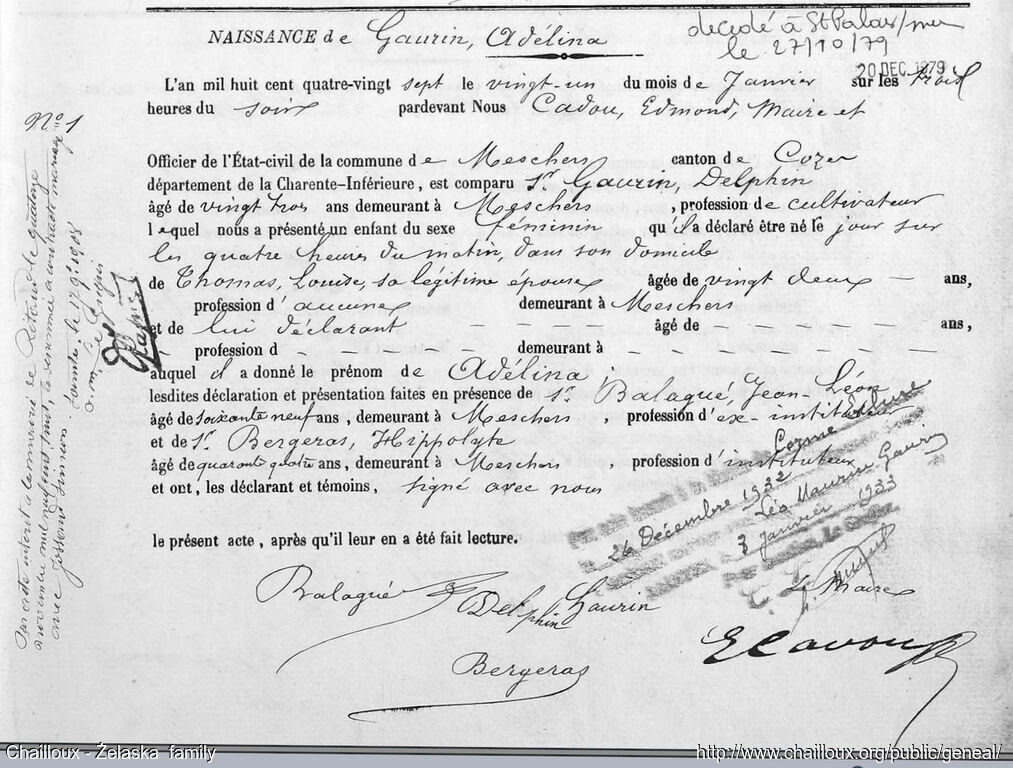 NAISSANCE de Gaurin, Adélina
décédé à St Palais/mer
le 27/10/79
20 DEC. 1979
L'an mil huit cent quatre-vingt sept le vingt-un du mois de Janvier sur les trois
heures du soir pardevant Nous Cadou, Edmond, Maire et
Officier de l'État-civil de la commune de Meschers canton de Cozes
département de la Charente-Inférieure, est comparu Sr Gaurin, Delphin
âgé de vingt trois ans demeurant à Meschers, profession de cultivateur
lequel nous a présenté un enfant du sexe féminin qu'il a déclaré être né le jour sur
les quatre heures du matin, dans son domicile
de Thomas, Louise, sa légitime épouse âgée de vingt deux - ans,
profession d'aucune demeurant à Meschers
et de lui déclarant - - - - - âgé de - - - - - - ans,
- profession d - - - - - - demeurant à - - - - - - - - -
auquel il a donné le prénom de Adélina
lesdites déclaration et présentation faites en présence de Sr Balagué, Jean-Léon
âgé de soixante neuf ans, demeurant à Meschers, profession d'ex-instituteur
et de Sr Bergeras, Hippolyte
âgé de quarante quatre ans, demeurant à Meschers, profession d'instituteur
et ont, les déclarant et témoins, signé avec nous
le présent acte, après qu'il leur en a été fait lecture.
26 Décembre 1932
Léo Maurin Gaurin
3 Janvier 1933
Le Maire
Balagué
Delphin Gaurin
Bergeras
E Cadou
No 1
Par acte inscrit à la mairie de
avec
Chailloux - Żelaska family
http://www.chailloux.org/public/geneal/